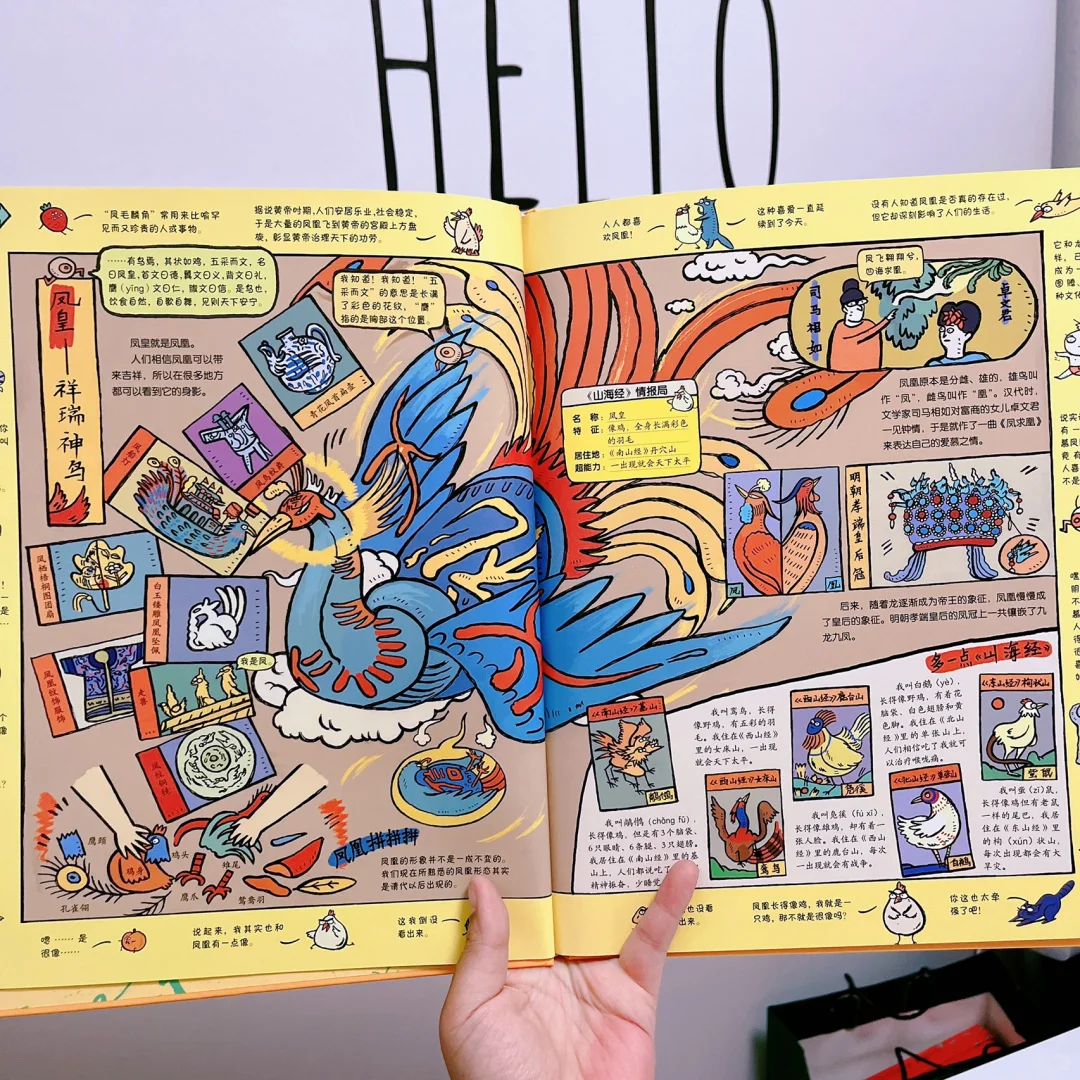 HELLO
“凤毛麟角”常用来比喻罕
见而又珍贵的人或事物。
据说黄帝时期,人们安居乐业,社会稳定,
于是大量的凤凰飞到黄帝的宫殿上方盘
旋,彰显黄帝治理天下的功劳。
人人都喜
欢凤凰!
这种喜爱一直延
续到了今天。
没有人知道凤凰是否真的存在过,
但它却深刻影响了人们的生活。
凤皇——祥瑞神鸟
……有鸟焉,其状如鸡,五采而文,名
曰凤皇,首文曰德,翼文曰义,背文曰礼,
膺(yīng)文曰仁,腹文曰信。是鸟也,
饮食自然,自歌自舞,见则天下安宁。
我知道!我知道!“五
采而文”的意思是长满
了彩色的花纹,“膺”
指的是胸部这个位置。
凤皇就是凤凰。
人们相信凤凰可以带
来吉祥,所以在很多地方
都可以看到它的身影。
青花凤首扁壶
凤鸟纹爵
凤栖梧桐图团扇
白玉镂雕凤凰坠佩
凤凰纹饰服饰
走兽
我是凤。
凤纹铜镜
鹰头
鸡头
鸡身
雉尾
鹰爪
鸳鸯羽
孔雀翎
凤凰拼拼拼
凤凰的形象并不是一成不变的。
我们现在所熟悉的凤凰形态其实
是清代以后出现的。
《山海经》情报局
名 称:凤皇
特 征:像鸡,全身长满彩色
的羽毛
居住地:《南山经》丹穴山
超能力:一出现就会天下太平
凤飞翱翔兮,
四海求凰。
司马相如
卓文君
凤凰原本是分雌、雄的,雄鸟叫
作“凤”,雌鸟叫作“凰”。汉代时,
文学家司马相如对富商的女儿卓文君
一见钟情,于是就作了一曲《凤求凰》
来表达自己的爱慕之情。
凤
凰
明朝孝端皇后冠
后来,随着龙逐渐成为帝王的象征,凤凰慢慢成
了皇后的象征。明朝孝端皇后的凤冠上一共镶嵌了九
龙九凤。
多一点《山海经》
《南山经》基山
我叫鸾鸟,长得
像野鸡,有五彩的羽
毛。我住在《西山经》
里的女床山,一出现
就会天下太平。
《西山经》鹿台山
凫徯
我叫白鵺(yè),
长得像野鸡,有着花
脑袋、白色翅膀和黄
色脚。我住在《北山
经》里的单张山上,
人们相信吃了我就可
以治疗喉咙痛。
《东山经》枸状山
我叫鵸鵌(chǎng fū),
长得像鸡,但是有3个脑袋、
6只眼睛、6条腿、3只翅膀。
我居住在《南山经》里的基
山上,人们都说吃了
精神振奋,少睡觉
《西山经》女床山
鸾鸟
我叫凫徯(fú xī),
长得像雄鸡,却有着一
张人脸。我住在《西山
经》里的鹿台山,每次
一出现就会有战争。
《北山经》单张山
白鵺
我叫䖪(zī)鼠,
长得像鸡但有老鼠
一样的尾巴,我居
住在《东山经》里
的枸(xún)状山,
每次出现都会有大
旱灾。
嗯……是
很像……
说起来,我其实也和
凤凰有一点像。
这我倒没
看出来。
也没看
出来。
凤凰长得像鸡,我就是一
只鸡,那不就是很像吗?
你这也太牵
强了吧!